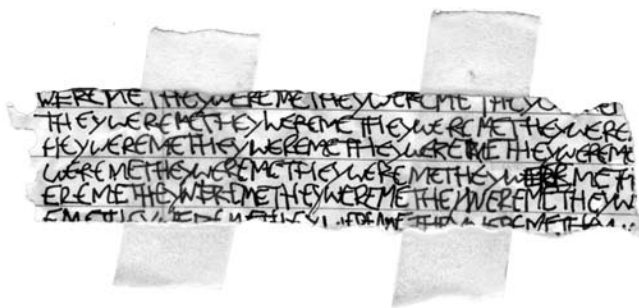 WEREME THEYWEREMETHEYWEREME THEY
THEYWEREMETHEYWEREME THEYWEREMETHEYWERE
HEYWEREMETHEYWEREMETHEYWEREMETHEYWEREME
WEREMETHEYWEREMETHEYWEREMETHEYWEREMETH
EREMETHEYWEREMETHEYWEREMETHEYWEREMETHEYW
EMETHEYWEREMETHEYWEREMETHEYWEREMETHEY